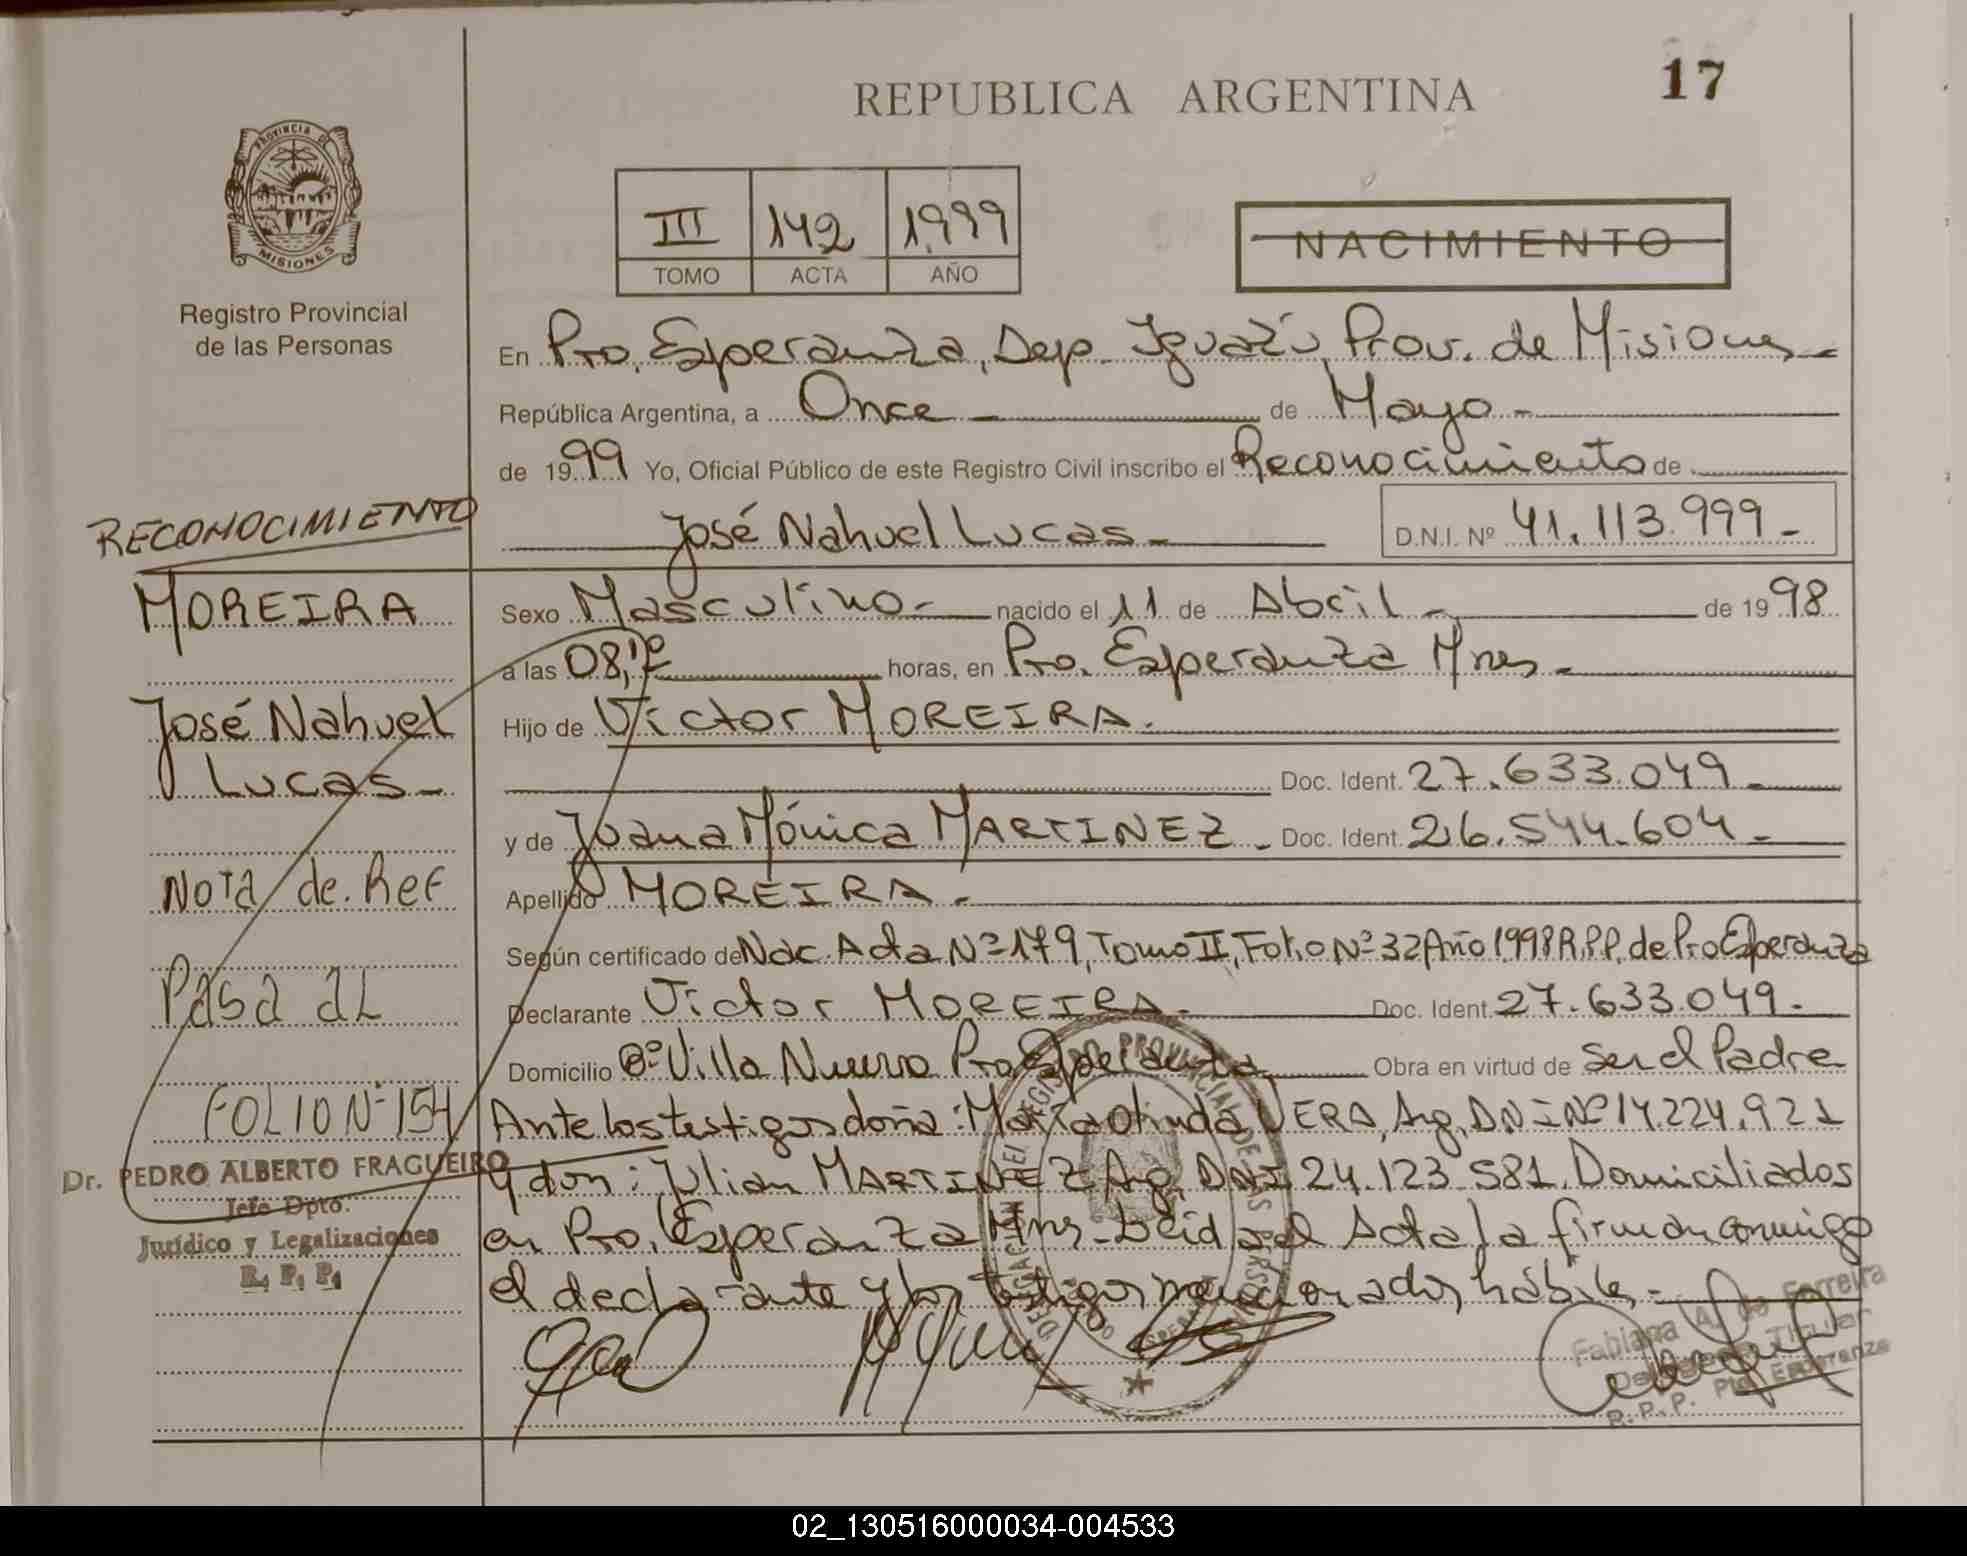 REPUBLICA ARGENTINA
17
PROVINCIA DE
MISIONES
Registro Provincial
de las Personas
III 142 1.999
TOMO ACTA AÑO
NACIMIENTO
En Pto. Esperanza, Dep. Iguazú, Prov. de Misiones
República Argentina, a Once de Mayo
de 1999 Yo, Oficial Público de este Registro Civil inscribo el Reconocimiento de
José Nahuel Lucas
D.N.I. Nº 41.113.999
RECONOCIMIENTO
MOREIRA
José Nahuel
Lucas
Nota de Ref
Pasa al
FOLIO Nº 154
Dr. PEDRO ALBERTO FRAGUEIRO
Jefe Dpto.
Jurídico y Legalizaciones
R. P. P.
Sexo Masculino nacido el 11 de Abril de 1998
a las 08,10 horas, en Pto. Esperanza Mnes
Hijo de Victor MOREIRA
Doc. Ident. 27.633.049
y de Juana Mónica MARTINEZ Doc. Ident. 26.544.604
Apellido MOREIRA
Según certificado de Nac. Acta Nº 179, Tomo II, Folio Nº 32 Año 1998 R.P.P. de Pto Esperanza
Declarante Victor MOREIRA Doc. Ident. 27.633.049
Domicilio Bº Villa Nueva Pto Esperanza Obra en virtud de Ser el Padre
Ante los testigos doña: Maria Olinda VERA, Arg, DNI Nº 14.224.921
y don: Julian MARTINEZ Arg, DNI 24.123.581. Domiciliados
en Pto. Esperanza Mns. Leida el Acta la firman conmigo
el declarante y los testigos mencionados hábiles
Fabiana A. de Ferreira
Delegada Titular
R.P.P. Pto Esperanza
02_130516000034-004533